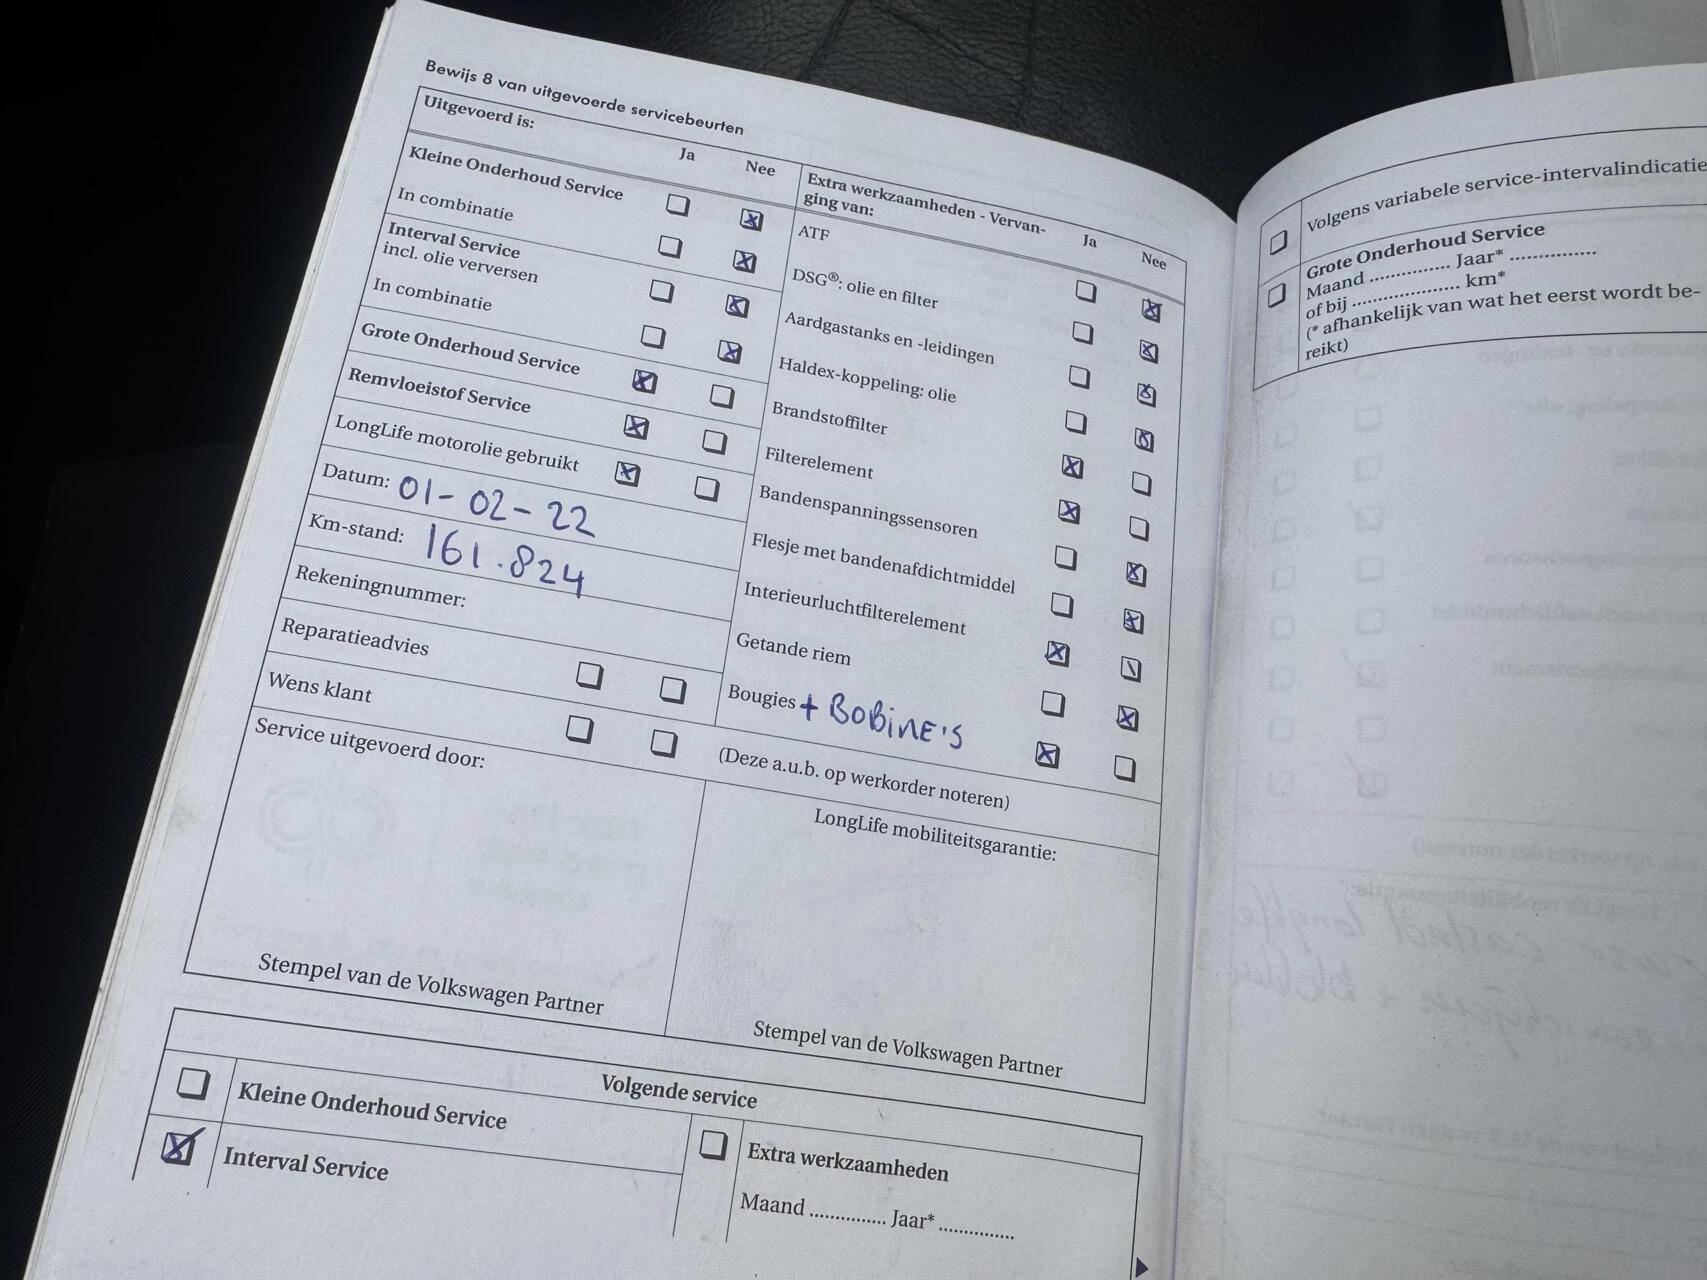 Bewijs 8 van uitgevoerde servicebeurten
Uitgevoerd is:
Ja
Nee
Kleine Onderhoud Service
In combinatie
Interval Service
incl. olie verversen
In combinatie
Grote Onderhoud Service
Remvloeistof Service
LongLife motorolie gebruikt
Datum: 01-02-22
Km-stand: 161.824
Rekeningnummer:
Reparatieadvies
Wens klant
Service uitgevoerd door:
Stempel van de Volkswagen Partner
Extra werkzaamheden - Vervan-
ging van:
Ja
Nee
ATF
DSG®: olie en filter
Aardgastanks en -leidingen
Haldex-koppeling: olie
Brandstoffilter
Filterelement
Bandenspanningssensoren
Flesje met bandenafdichtmiddel
Interieurluchtfilterelement
Getande riem
Bougies + BOBINE'S
(Deze a.u.b. op werkorder noteren)
LongLife mobiliteitsgarantie:
Stempel van de Volkswagen Partner
Volgende service
Kleine Onderhoud Service
Interval Service
Extra werkzaamheden
Maand .............. Jaar* ..............
Volgens variabele service-intervalindicatie
Grote Onderhoud Service
Maand .............. Jaar* ..............
of bij .................... km*
(* afhankelijk van wat het eerst wordt be-
reikt)